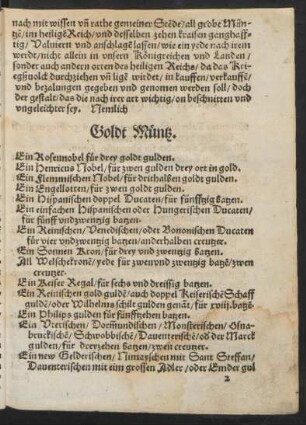 nach mit wissen vñ rathe gemeiner Stede/ all grobe Müntz/
im heiligē Reich/ vnd deisselben zehen kraisen ganghafftig/
Valuiern vnd anschlagē lassen/ wie ein yede nach irem
werde/ nicht allein in vnsern Königreichen vnd Landen/
sonder auch andern orten des heiligen Reichs/ da das Kriegsuolck
durchziehen vñ ligē wirdet/ in kauffen/ verkauffē/
vnd bezalungen gegeben vnd genomen werden soll/ doch
der gestalt/ das die nach irer art wichtig/ on beschnitten vnd
vngeleichter sey. Nemlich
Goldt Müntz.
Ein Rosennobel für drey goldt gulden.
Ein Henricus Nobel/ für zwen gulden drey ort in gold.
Ein Flemmischen Nobel/ für drithalben goldt gulden.
Ein Engellotten/ für zwen goldt gulden.
Ein Hispanischen doppel Ducaten/ für fünfftzig batzen.
Ein einfachen Hispanischen oder Hungerischen Ducaten/
für fünff vnd zwentzig batzen.
Ein Reinischen/ Venedischen/ oder Bononischen Ducaten
für vier vnd zwentzig batzen/ anderhalben creutzer.
Ein Sonnen Kron/ für drey vnd zwentzig batzen.
All Welsche kronē/ yede für zwen vnd zwentzig batzē/ zwen
creutzer.
Ein Keiser Regal/ für sechs vnd dreissig batzen.
Ein Reinischen gold guldē/ auch doppel Keiserischē Schaff
guldē/ oder Wilhelms schilt gulden genāt/ für xviij. batzē.
Ein Philips gulden für fünfftzehen batzen.
Ein Vtrischen/ Dormundischen/ Monsterischen/ Osnabruckischē/
Schwobbischē/ Dauenterischē/ od der Marck
gulden/ für dreyzehen batzen/ zwen creutzer.
Ein new Gelderischen/ Nimayschen mit Sant Steffan/
Dauenterischen mit eim grossen Adler/ oder Emder gul
2